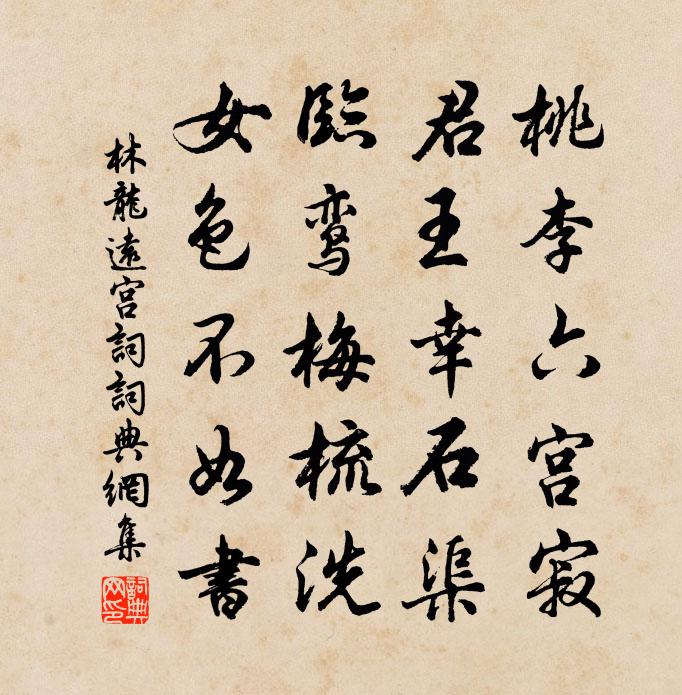 桃李六宫寂
君王幸石渠
臨鸾梅梳洗
女色不如書
林龍遠宫詞詞典網集
詞典网印